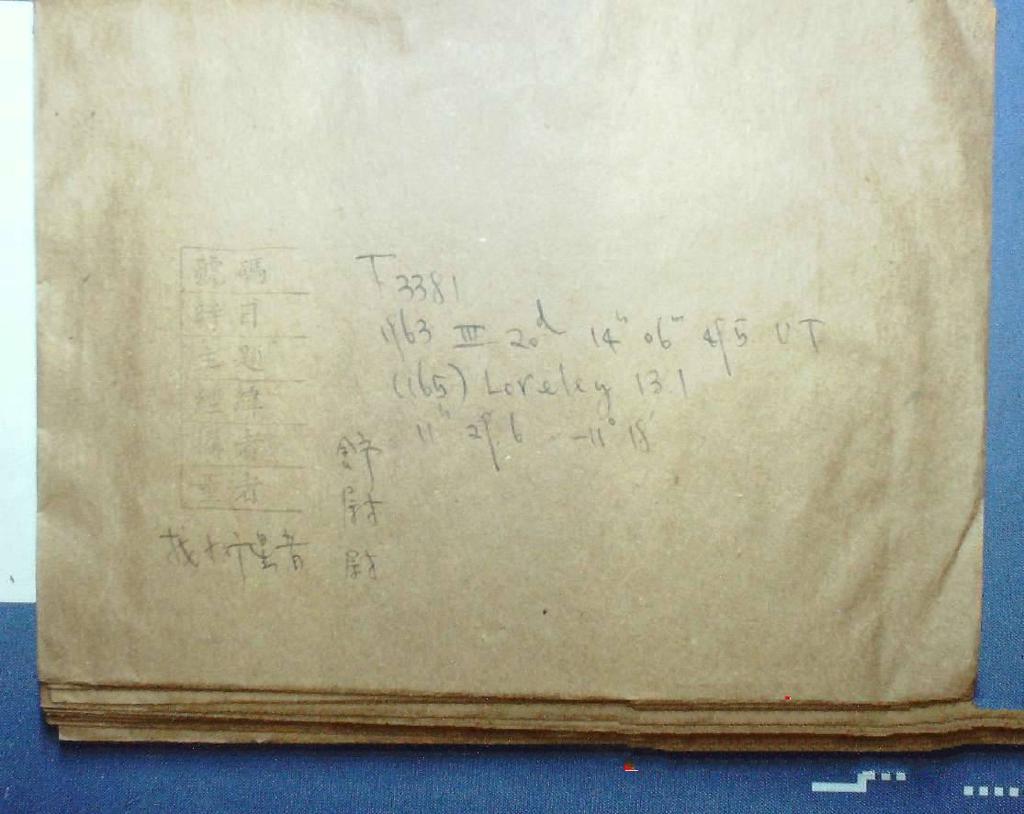 號碼 T3381
時日 1963 III 20ᵈ 14ʰ 06ᵐ 4ˢ.5 UT
主題 (165) Loreley 13.1
經緯 11ʰ 2ᵐ.6 -11° 18′
攝者 舒
量者 尉
找小行星者 尉